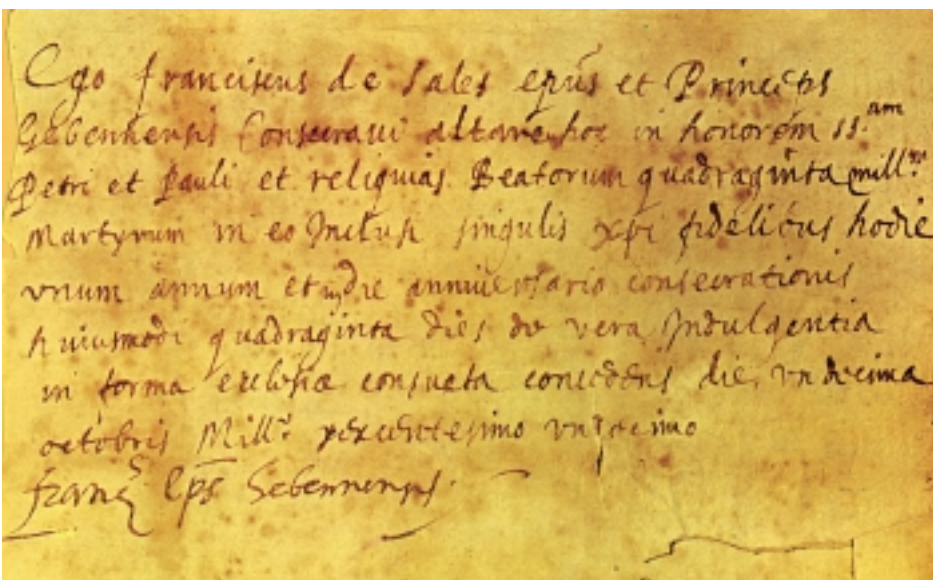 Ego franciscus de Sales epũs et Princeps
Gebennensis Consecraui altare hoc in honorem SS.am
Petri et Pauli et reliquias Beatorum quadraginta mill.m
Martyrum in eo Inclusi singulis xpi fidelibus hodie
vnum annum et in die anniuersario consecrationis
huiusmodi quadraginta dies de vera Indulgentia
in forma ecclesiæ consueta concedens die vndecima
octobris Mill.o sexcentesimo vndecimo
franc. Eps Gebennensis.